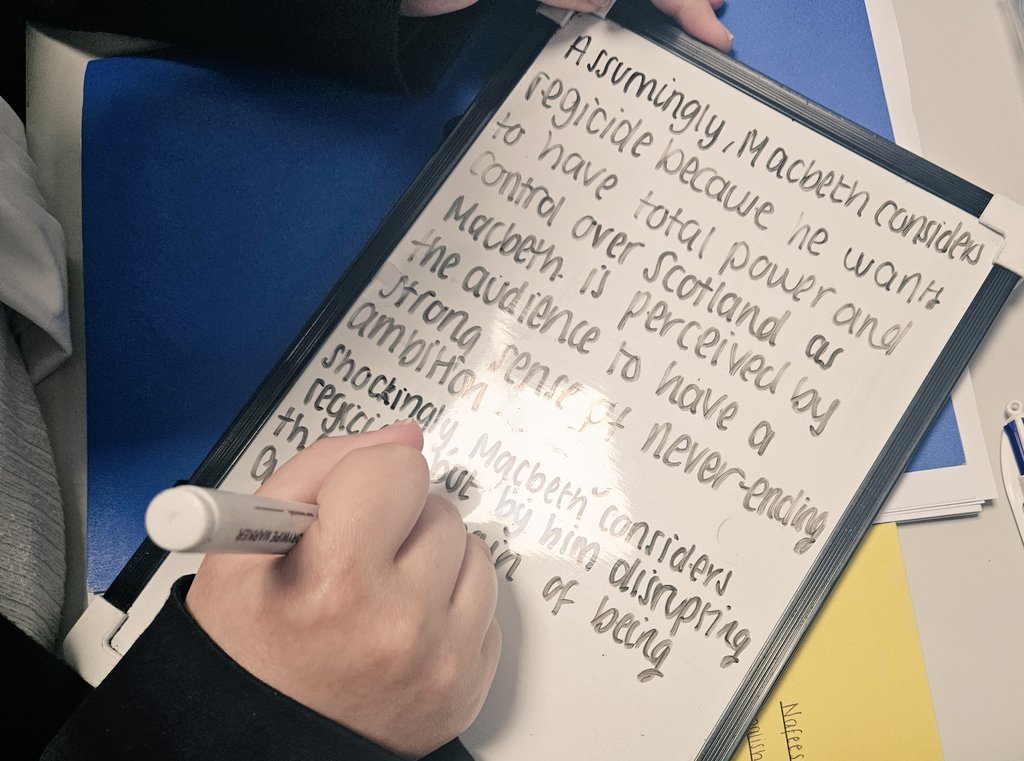 Assumingly, Macbeth considers
regicide because he wants
to have total power and
control over Scotland as
Macbeth is perceived by
the audience to have a
strong sense of never-ending
ambition.
shockingly, Macbeth considers
but by him disrupting
of being
DRYWIPE MARKER
Nafees